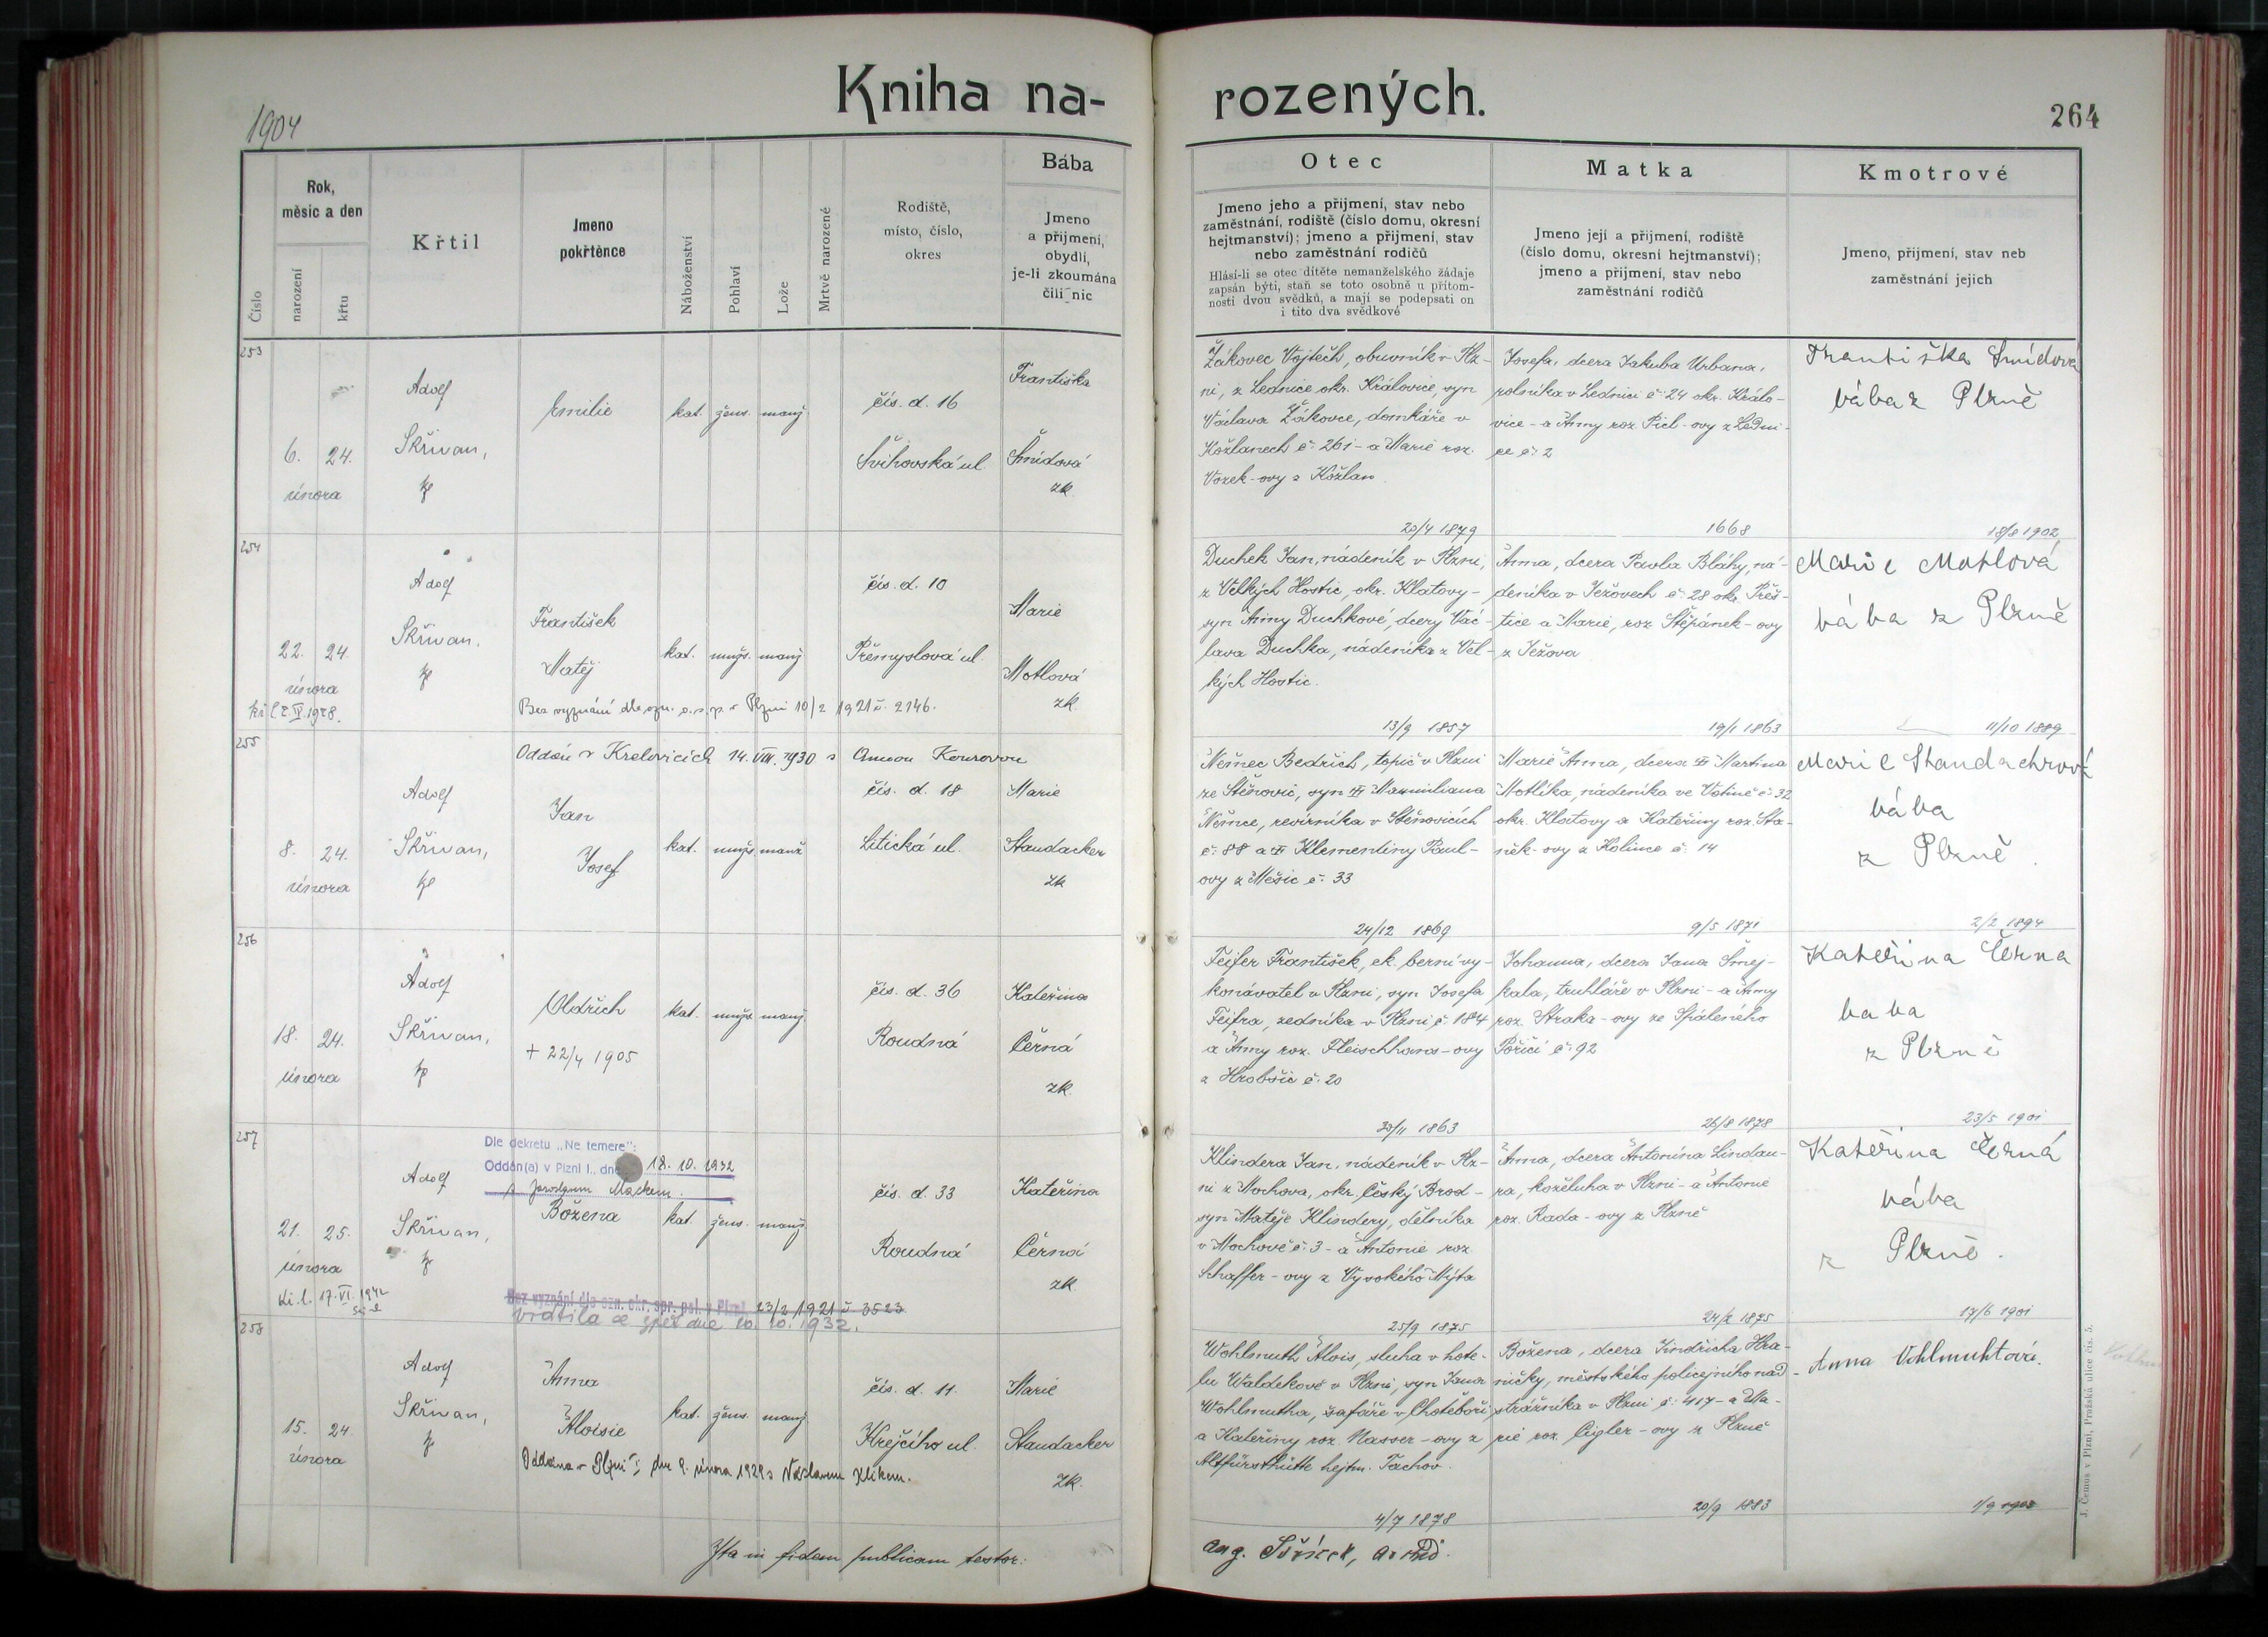 1904
Kniha na-
rozených.
264
Číslo
Rok,
měsíc a den
narození
křtu
Křtil
Jmeno
pokřtěnce
Náboženství
Pohlaví
Lože
Mrtvě narozené
Rodiště,
místo, číslo,
okres
Bába
Jmeno
a přijmení,
obydlí,
je-li zkoumána
čili nic
Otec
Jmeno jeho a přijmení, stav nebo
zaměstnání, rodiště (číslo domu, okresní
hejtmanství); jmeno a přijmení, stav
nebo zaměstnání rodičů
Hlásí-li se otec dítěte nemanželského žádaje
zapsán býti, staň se toto osobně u přítom-
nosti dvou svědků, a mají se podepsati on
i tito dva svědkové
Matka
Jmeno její a přijmení, rodiště
(číslo domu, okresní hejtmanství);
jmeno a přijmení, stav nebo
zaměstnání rodičů
Kmotrové
Jmeno, přijmení, stav neb
zaměstnání jejich
253
6. 24.
února
Adolf
Skřivan,
Emilie
kat. žens. manž.
čís. d. 16
Švihovská ul.
Františka
Šmídová
zk.
Žákovec Vojtěch, obuvník v Plz-
ni, z Lednice okr. Kralovice, syn
Václava Žákovce, domkáře v
Kožlanech č. 261 - a Marie roz.
Vozek-ovy z Kožlan.
20/4 1879
Josefa, dcera Jakuba Urbana,
rolníka v Lednici č. 24 okr. Králo-
vice - a Anny roz. Picl-ovy z Ledni-
ce č. 2
1668
Františka Šmídová
bába z Plzně
18/8 1902
254
22. 24.
února
Adolf
Skřivan.
František
Matěj
kat. mužs. manž
čís. d. 10
Přemyslová ul.
Marie
Motlová
zk.
Bez vyznání dle ozn. o. s. p. v Plzni 10/2 1921 č. 2146.
Duchek Jan, nádeník v Plzni,
z Velkých Hostic, okr. Klatovy -
syn Anny Duchkové, dcery Vác-
lava Duchka, nádeníka z Vel-
kých Hostic.
13/9 1857
Anna, dcera Pavla Bláhy, ná-
deníka v Ježovech č. 28 okr. Přeš-
tice a Marie, roz. Štěpánek-ovy
z Ježova
19/1 1863
Marie Motlová
bába z Plzně
11/10 1889
255
Oddán v Kralovicích 14. VIII. 1930 s Annou Kourovou
8. 24.
února
Adolf
Skřivan,
Jan
Josef
kat. mužs. manž
čís. d. 18
Litická ul.
Marie
Staudacker
zk
Němec Bedřich, topič v Plzni
ze Štěnovic, syn Maxmiliana
Němce, revírníka v Štěnovicích
č. 88 a Klementiny Paul-
ovy z Měšic č. 33
24/12 1869
Marie Anna, dcera Martina
Motlíka, nádeníka ve Volině č. 32
okr. Klatovy a Kateřiny roz. Sta-
něk-ovy z Kolince č. 14
9/5 1871
bába
z Plzně.
2/2 1894
256
18. 24.
února
Adolf
Skřivan,
Oldřich
+ 22/4 1905
kat. mužs. manž.
čís. d. 36
Roudná
Kateřina
Černá
zk.
Feifer František, ek. berní vy-
konávatel v Plzni, syn Josefa
Feifra, zedníka v Plzni č. 184
a Anny roz. Fleischhans-ovy
z Hrobšic č. 20
20/11 1863
Johanna, dcera Jana Šmej-
kala, truhláře v Plzni - a Anny
roz. Straka-ovy ze Spáleného
Poříčí č. 92
26/8 1878
Kateřina Černa
baba
z Plzně
23/5 1901
257
Dle dekretu „Ne temere":
Oddán(a) v Plzni I., dne 18. 10. 1932
21. 25.
února
Adolf
Skřivan,
Božena
kat. žens. manž.
čís. d. 33
Roudná
Kateřina
Černá
zk.
Bez vyznání dle ozn. okr. spr. pol. v Plzni 23/2 1921 č 3523
vrátila se zpět dne 10. 10. 1932.
Klindera Jan, nádeník v Plz-
ni z Mochova, okr. Český Brod -
syn Matěje Klindery, dělníka
v Mochově č. 3 - a Antonie roz.
Schaffer-ovy z Vysokého Mýta
25/9 1875
Anna, dcera Antonína Lindau-
ra, koželuha v Plzni - a Antonie
roz. Rada-ovy z Plzně
24/2 1875
Kateřina Černá
bába
z Plzně.
17/6 1901
258
15. 24.
února
Adolf
Skřivan,
Anna
Aloisie
kat. žens. manž.
čís. d. 11.
Krejčího ul.
Marie
Staudacker
zk.
Oddána v Plzni dne 9. února 1929 s Václavem Klikem.
Wohlmuth Alois, sluha v hote-
lu Waldekově v Plzni, syn Jana
Wohlmutha, šafáře v Chotěboři
a Kateřiny roz. Nasser-ovy z
Altfürsthütte hejtm. Tachov.
4/7 1878
Božena, dcera Jindřicha Hra-
ničky, městského policejního nad-
strážníka v Plzni č. 417 - a Ma-
rie roz. Cigler-ovy z Plzně
20/9 1883
Anna Vohlmuhtová.
1/9 1903
Ita in fidem publicam testor:
J. Čemus v Plzni, Pražská ulice čís. 5.